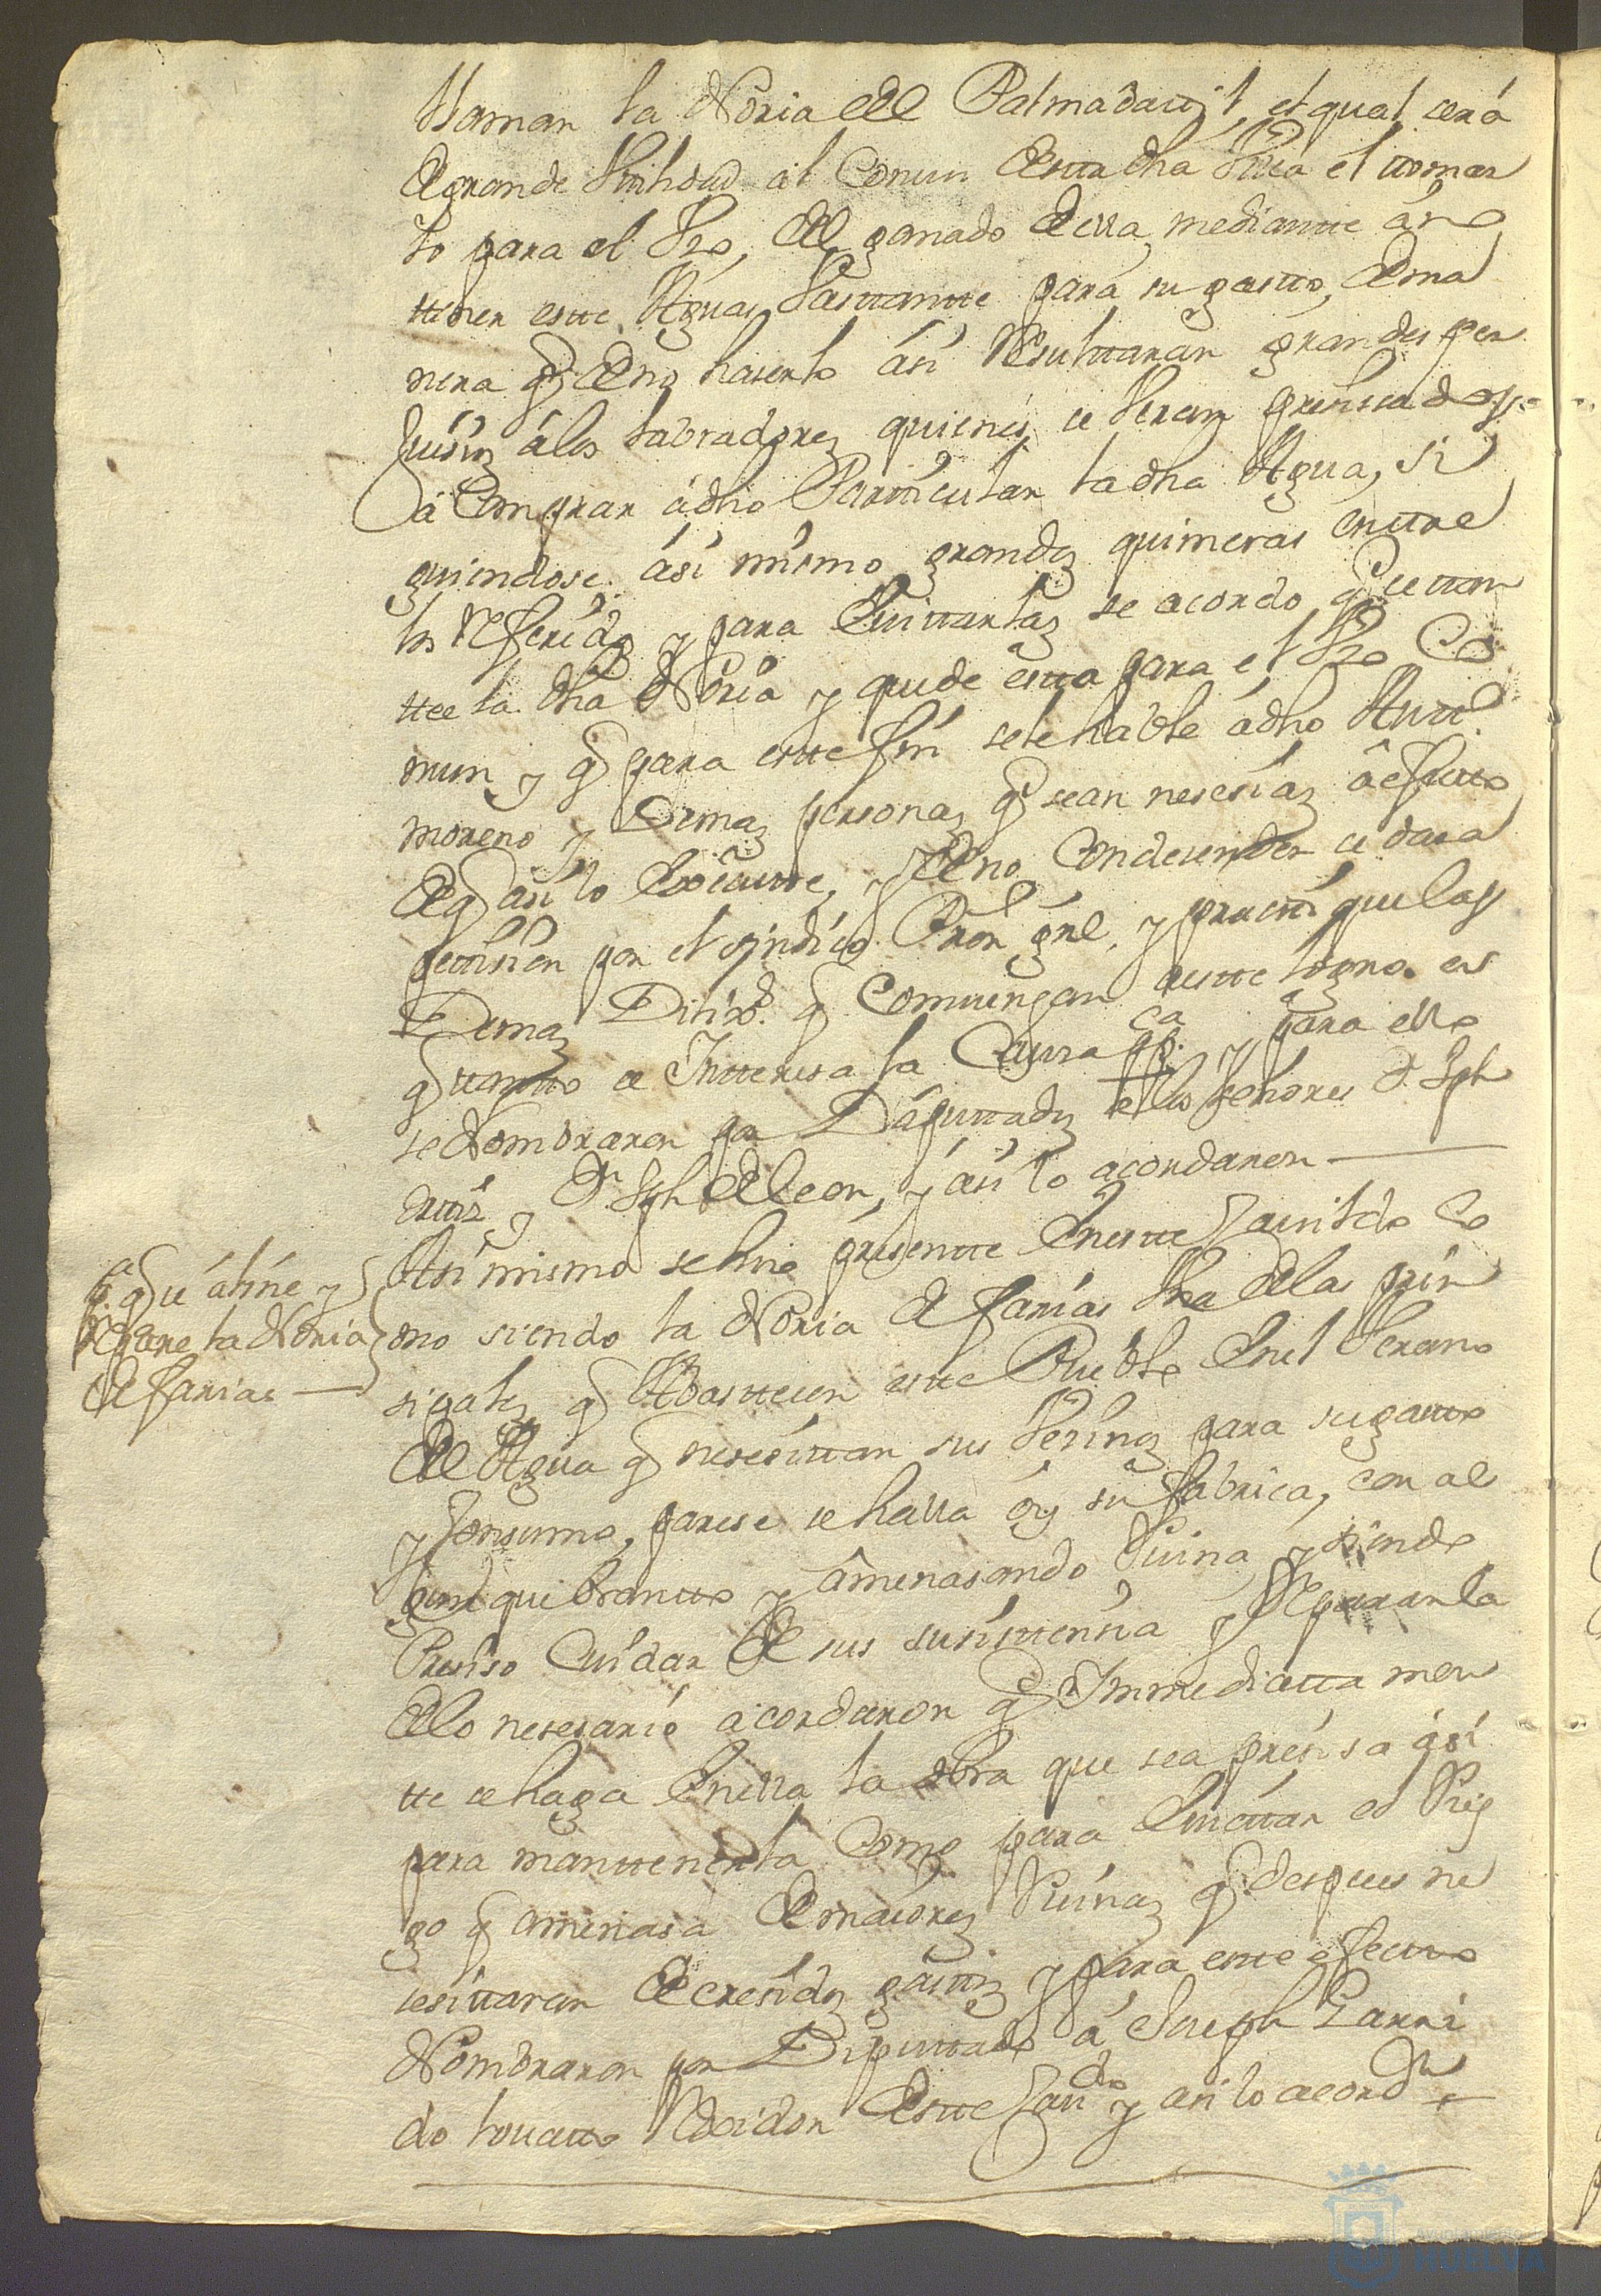 llaman la Noria del Palmadavil, el qual será
de grande Vtilidad al Comun de esta dha Villa el tomar
lo para el Vzo, del ganado de ella mediantte á no
ttener estte Aguas Vasttantte para su gastto, de ma
nera q de no haserlo ási Resulttaran grandes per
Juisios á los labradores quienes se veran presisados
a Comprar ádho Partticular la dha Agua, Si
guiendose ási mismo grandes quimeras enttre
los Referidos y para Evittarlas se acordo q se ttan
ttee la dha Noria y quede estta para el Vzo Co
mun y q para estte fin se le hable ádho Antto
moreno y Demas personas q sean nesesias á efectto
de q asi lo Execute, y de no Condesender se dara
pettision por el sindico Pror gnl, y practtique las
Demas Dilixs. q Comvengan a estte logro. en
q tantto se Ynteresa la Causa pca. y para ello
se Nombraron por Diputtados a los señores D. Jph
Ortiz y Dn Jph de Leon, y ási lo acordaron
Asi mismo se hiso presentte En estte Cavildo Co
pa. q se aliñe y
Repare la Noria
de farias
mo siendo la Noria de farias Vna de las prin
sipales q Abasttecen estte Pueblo En el Verano
del Agua q nesesittan sus Vezinos para su gastto
y Consumo, parese se halla oy su fabrica, con al
gun quebrantto y amenasando Ruina, y siendo
Presiso Cuidar de sus susisttensia y Repararla
de lo nesesario acordaron q Ynmediatta men
tte se haga En ella la obra que sea presisa ási
para manttenerla Como para Evittar el Ries
go q amenasa de maiores Ruinas q despues ne
sesittaran de cresidos gasttos y para estte efectto
Nombraron por Diputtado á Joseph Garri
do lovatto Rexidor de estte Cavdo y asi lo acordn
Ayuntamiento de
HUELVA